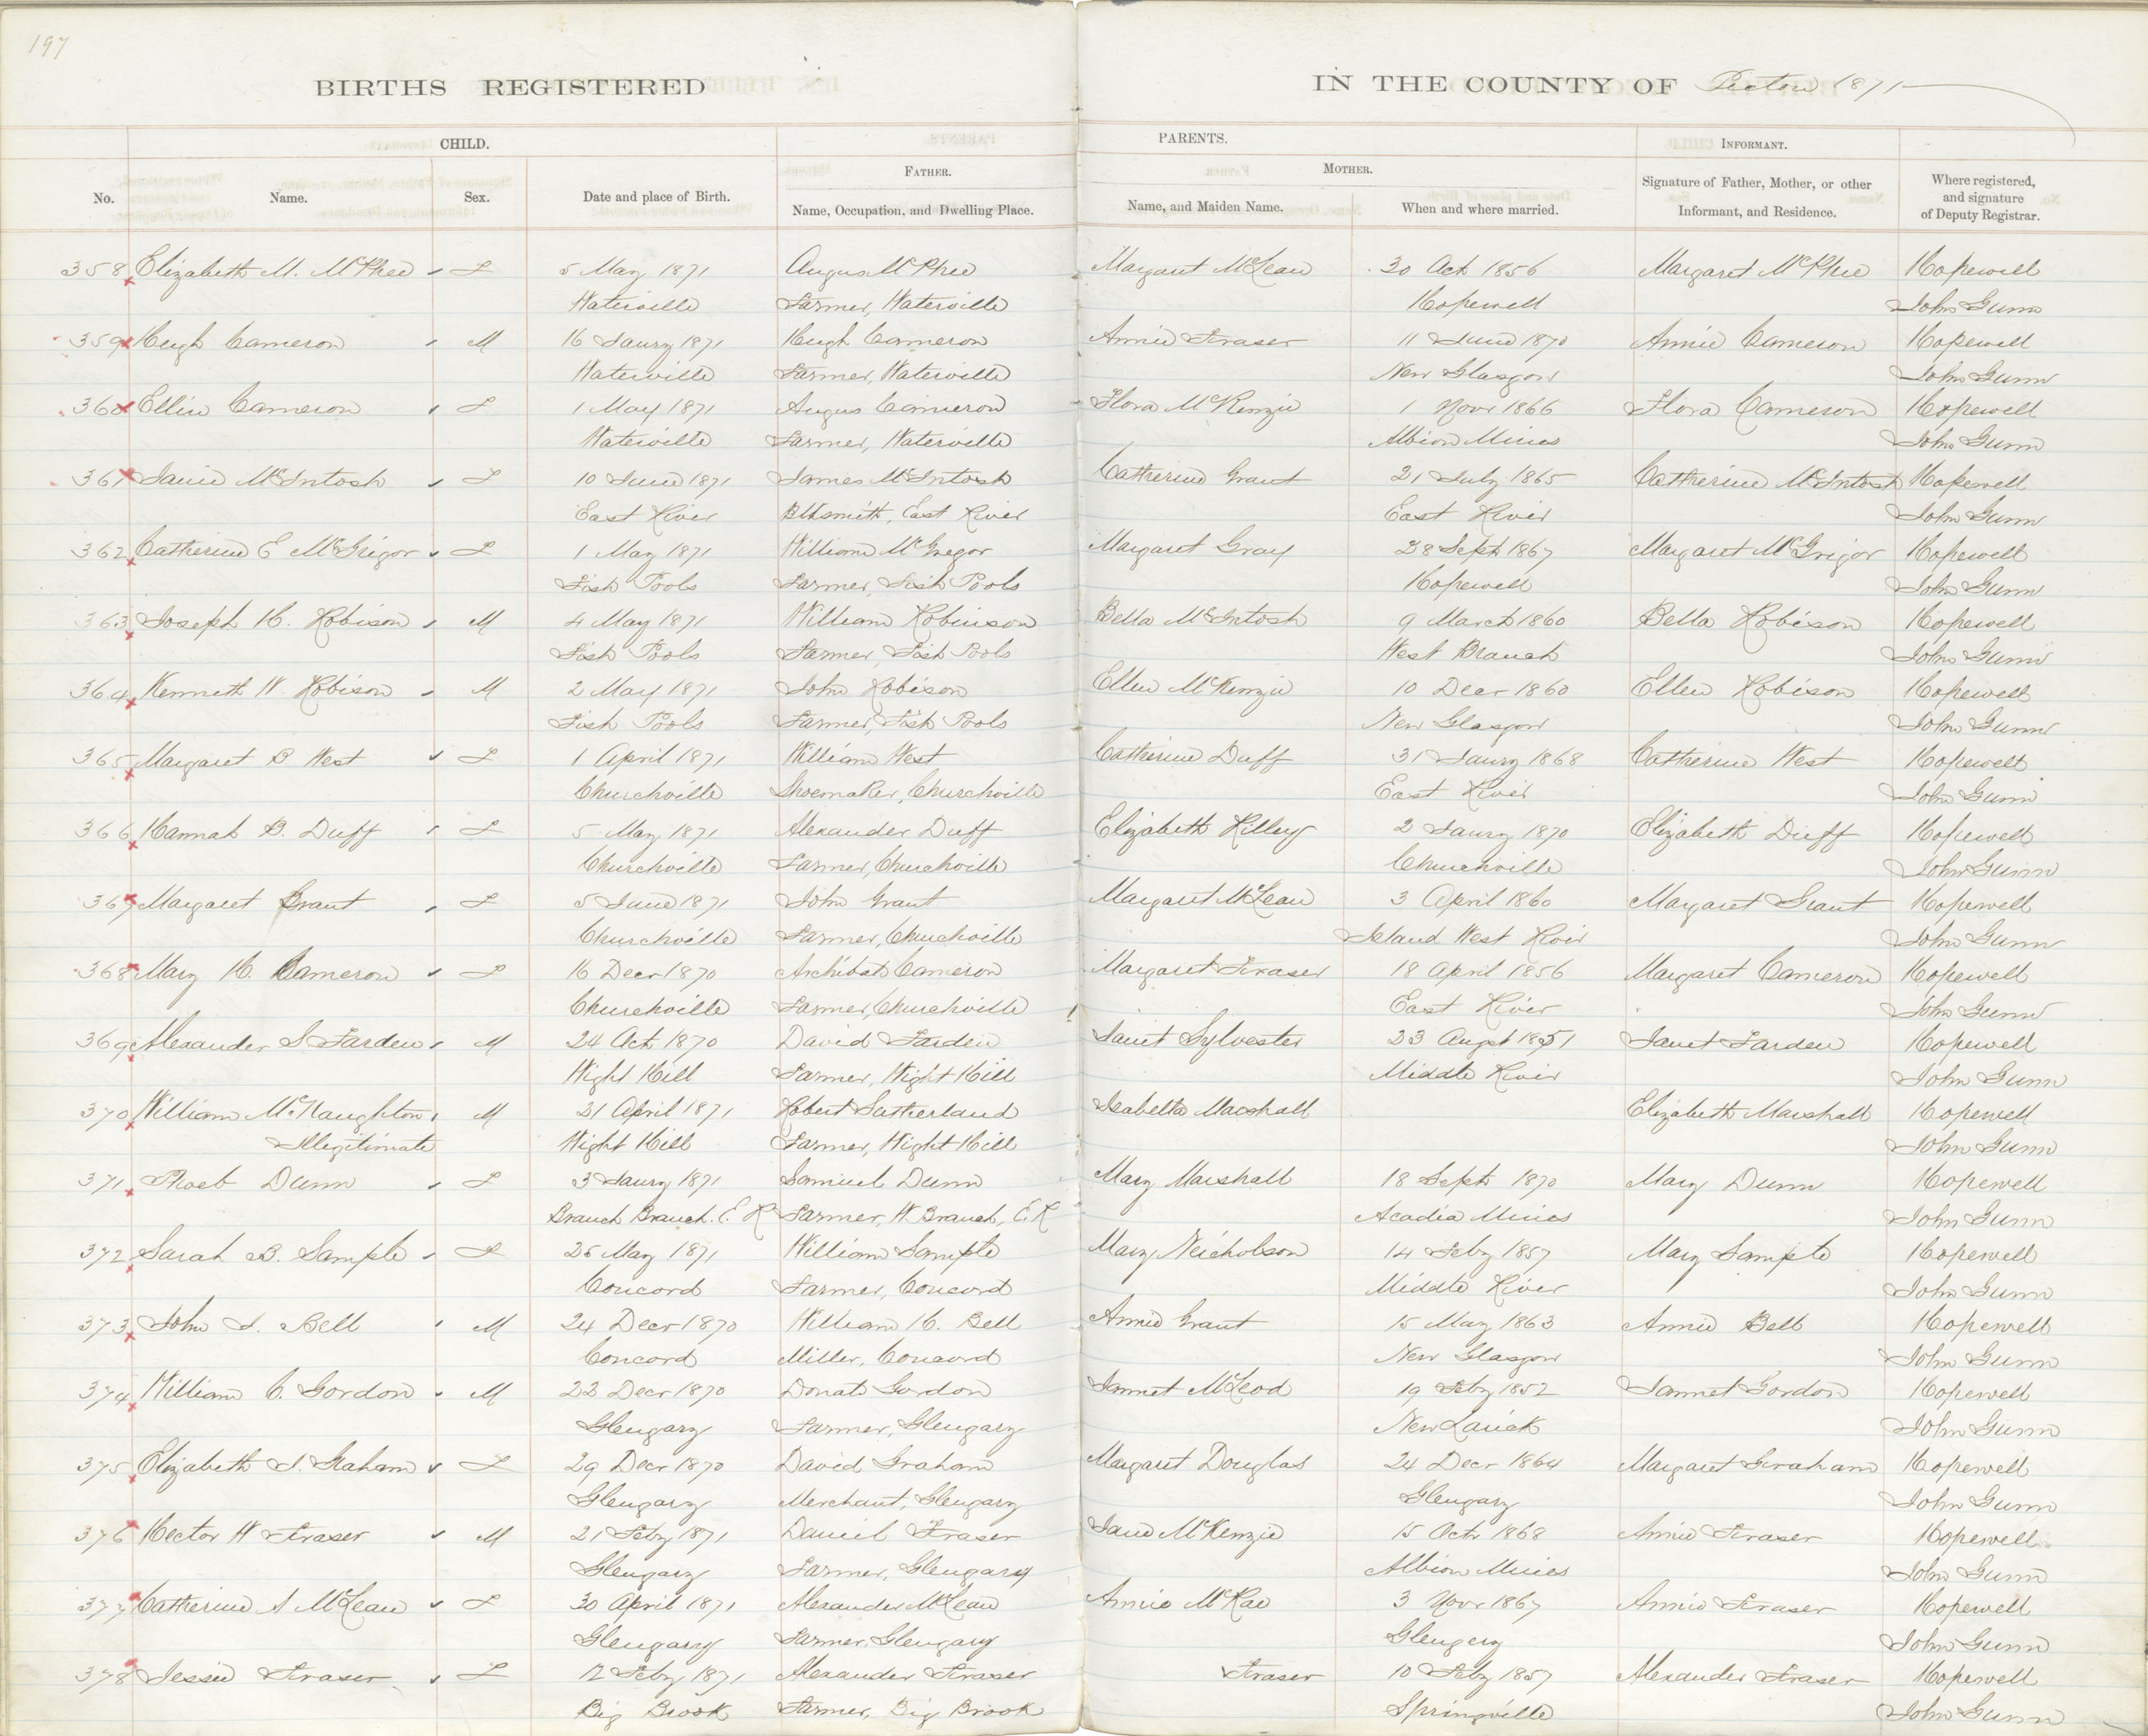 197
BIRTHS REGISTERED IN THE COUNTY OF Pictou 1871
CHILD. PARENTS. INFORMANT.
FATHER. MOTHER.
No. Name. Sex. Date and place of Birth. Name, Occupation, and Dwelling Place. Name, and Maiden Name. When and where married. Signature of Father, Mother, or other Informant, and Residence. Where registered, and signature of Deputy Registrar.
358 Elizabeth M. McPhee F 5 May 1871 Angus McPhee Margaret McLean 30 Oct 1856 Margaret McPhee Hopewell
Waterville Farmer, Waterville Hopewell John Gunn
359 Hugh Cameron M 16 Jaury 1871 Hugh Cameron Annie Fraser 11 June 1870 Annie Cameron Hopewell
Waterville Farmer, Waterville New Glasgow John Gunn
360 Ellin Cameron F 1 May 1871 Angus Cameron Flora McKenzie 1 Novr 1866 Flora Cameron Hopewell
Waterville Farmer, Waterville Albion Mines John Gunn
361 Janie McIntosh F 10 June 1871 James McIntosh Catherine Grant 21 July 1865 Catherine McIntosh Hopewell
East River Blksmith, East River East River John Gunn
362 Catherine E McGrigor F 1 May 1871 William McGregor Margaret Gray 28 Sept 1867 Margaret McGrigor Hopewell
Fish Pools Farmer, Fish Pools Hopewell John Gunn
363 Joseph H. Robison M 4 May 1871 William Robinson Bella McIntosh 9 March 1860 Bella Robison Hopewell
Fish Pools Farmer, Fish Pools West Branch John Gunn
364 Kenneth W. Robison M 2 May 1871 John Robison Ellen McKenzie 10 Decr 1860 Ellen Robison Hopewell
Fish Pools Farmer, Fish Pools New Glasgow John Gunn
365 Margaret B West F 1 April 1871 William West Catherine Duff 31 Jaury 1868 Catherine West Hopewell
Churchville Shoemaker, Churchville East River John Gunn
366 Hannah B. Duff F 5 May 1871 Alexander Duff Elizabeth Killey 2 Jaury 1870 Elizabeth Duff Hopewell
Churchville Farmer, Churchville Churchville John Gunn
367 Margaret Grant F 5 June 1871 John Grant Margaret McLean 3 April 1860 Margaret Grant Hopewell
Churchville Farmer, Churchville Island West River John Gunn
368 Mary H. Cameron F 16 Decr 1870 Archibald Cameron Margaret Fraser 18 April 1856 Margaret Cameron Hopewell
Churchville Farmer, Churchville East River John Gunn
369 Alexander S Farden M 24 Oct 1870 David Farden Janet Sylvester 23 Augst 1851 Janet Farden Hopewell
Wight Hill Farmer, Wight Hill Middle River John Gunn
370 William McNaughton M 21 April 1871 Robert Sutherland Isabella Marshall Elizabeth Marshall Hopewell
Illegitimate Wight Hill Farmer, Wight Hill John Gunn
371 Phoeb Dunn F 3 Jaury 1871 Samuel Dunn Mary Marshall 18 Sept 1870 Mary Dunn Hopewell
Branch Branch. E R Farmer, W Branch, E. R Acadia Mines John Gunn
372 Sarah B. Sample F 25 May 1871 William Sample Mary Neicholson 14 Feby 1857 Mary Sample Hopewell
Concord Farmer, Concord Middle River John Gunn
373 John I. Bell M 24 Decr 1870 William H. Bell Annie Grant 15 May 1863 Annie Bell Hopewell
Concord Miller, Concord New Glasgow John Gunn
374 William C. Gordon M 23 Decr 1870 Donald Gordon Jannet McLeod 19 Feby 1852 Jannet Gordon Hopewell
Glengary Farmer, Glengary New Lairck John Gunn
375 Elizabeth I. Graham F 29 Decr 1870 David Graham Margaret Douglas 24 Decr 1864 Margaret Graham Hopewell
Glengary Merchant, Glengary Glengary John Gunn
376 Hector W Fraser M 21 Feby 1871 Daniel Fraser Jane McKenzie 15 Octr 1868 Annie Fraser Hopewell
Glengary Farmer, Glengary Albion Mines John Gunn
377 Catherine A McLean F 30 April 1871 Alexander McLean Annie McRae 3 Novr 1867 Annie Fraser Hopewell
Glengary Farmer, Glengary Glengery John Gunn
378 Jessie Fraser F 12 Feby 1871 Alexander Fraser Fraser 10 Feby 1857 Alexander Fraser Hopewell
Big Brook Farmer, Big Brook Springville John Gunn